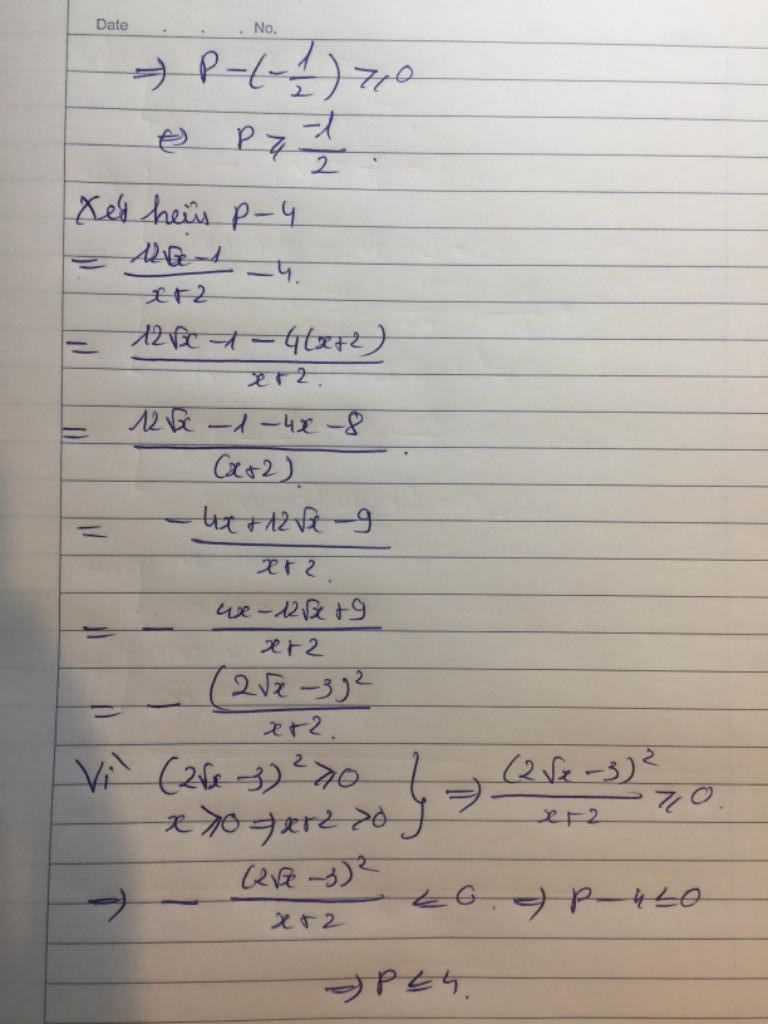 Date . . . No.
⇒ P - (-1/2) ⩾ 0
⇔ P ⩾ -1/2.
Xét hiệu P - 4
= (12√x - 1)/(x+2) - 4.
= (12√x - 1 - 4(x+2))/(x+2).
= (12√x - 1 - 4x - 8)/(x+2).
= (-4x + 12√x - 9)/(x+2).
= - (4x - 12√x + 9)/(x+2)
= - (2√x - 3)²/(x+2).
Vì (2√x - 3)² ⩾ 0
x ⩾ 0 ⇒ x+2 > 0 } ⇒ (2√x - 3)²/(x+2) ⩾ 0.
⇒ - (2√x - 3)²/(x+2) ≤ 0. ⇒ P - 4 ≤ 0
⇒ P ≤ 4.